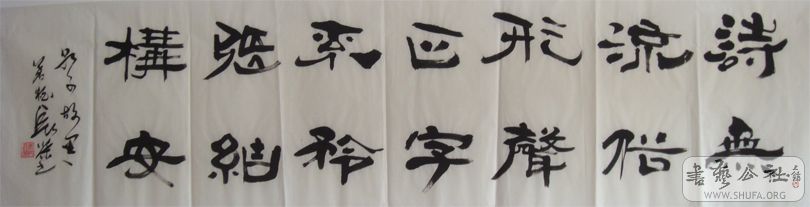 詩無
流俗
形聲
正字
不矜
張結
構安
書藝公社
WWW.SHUFA.ORG